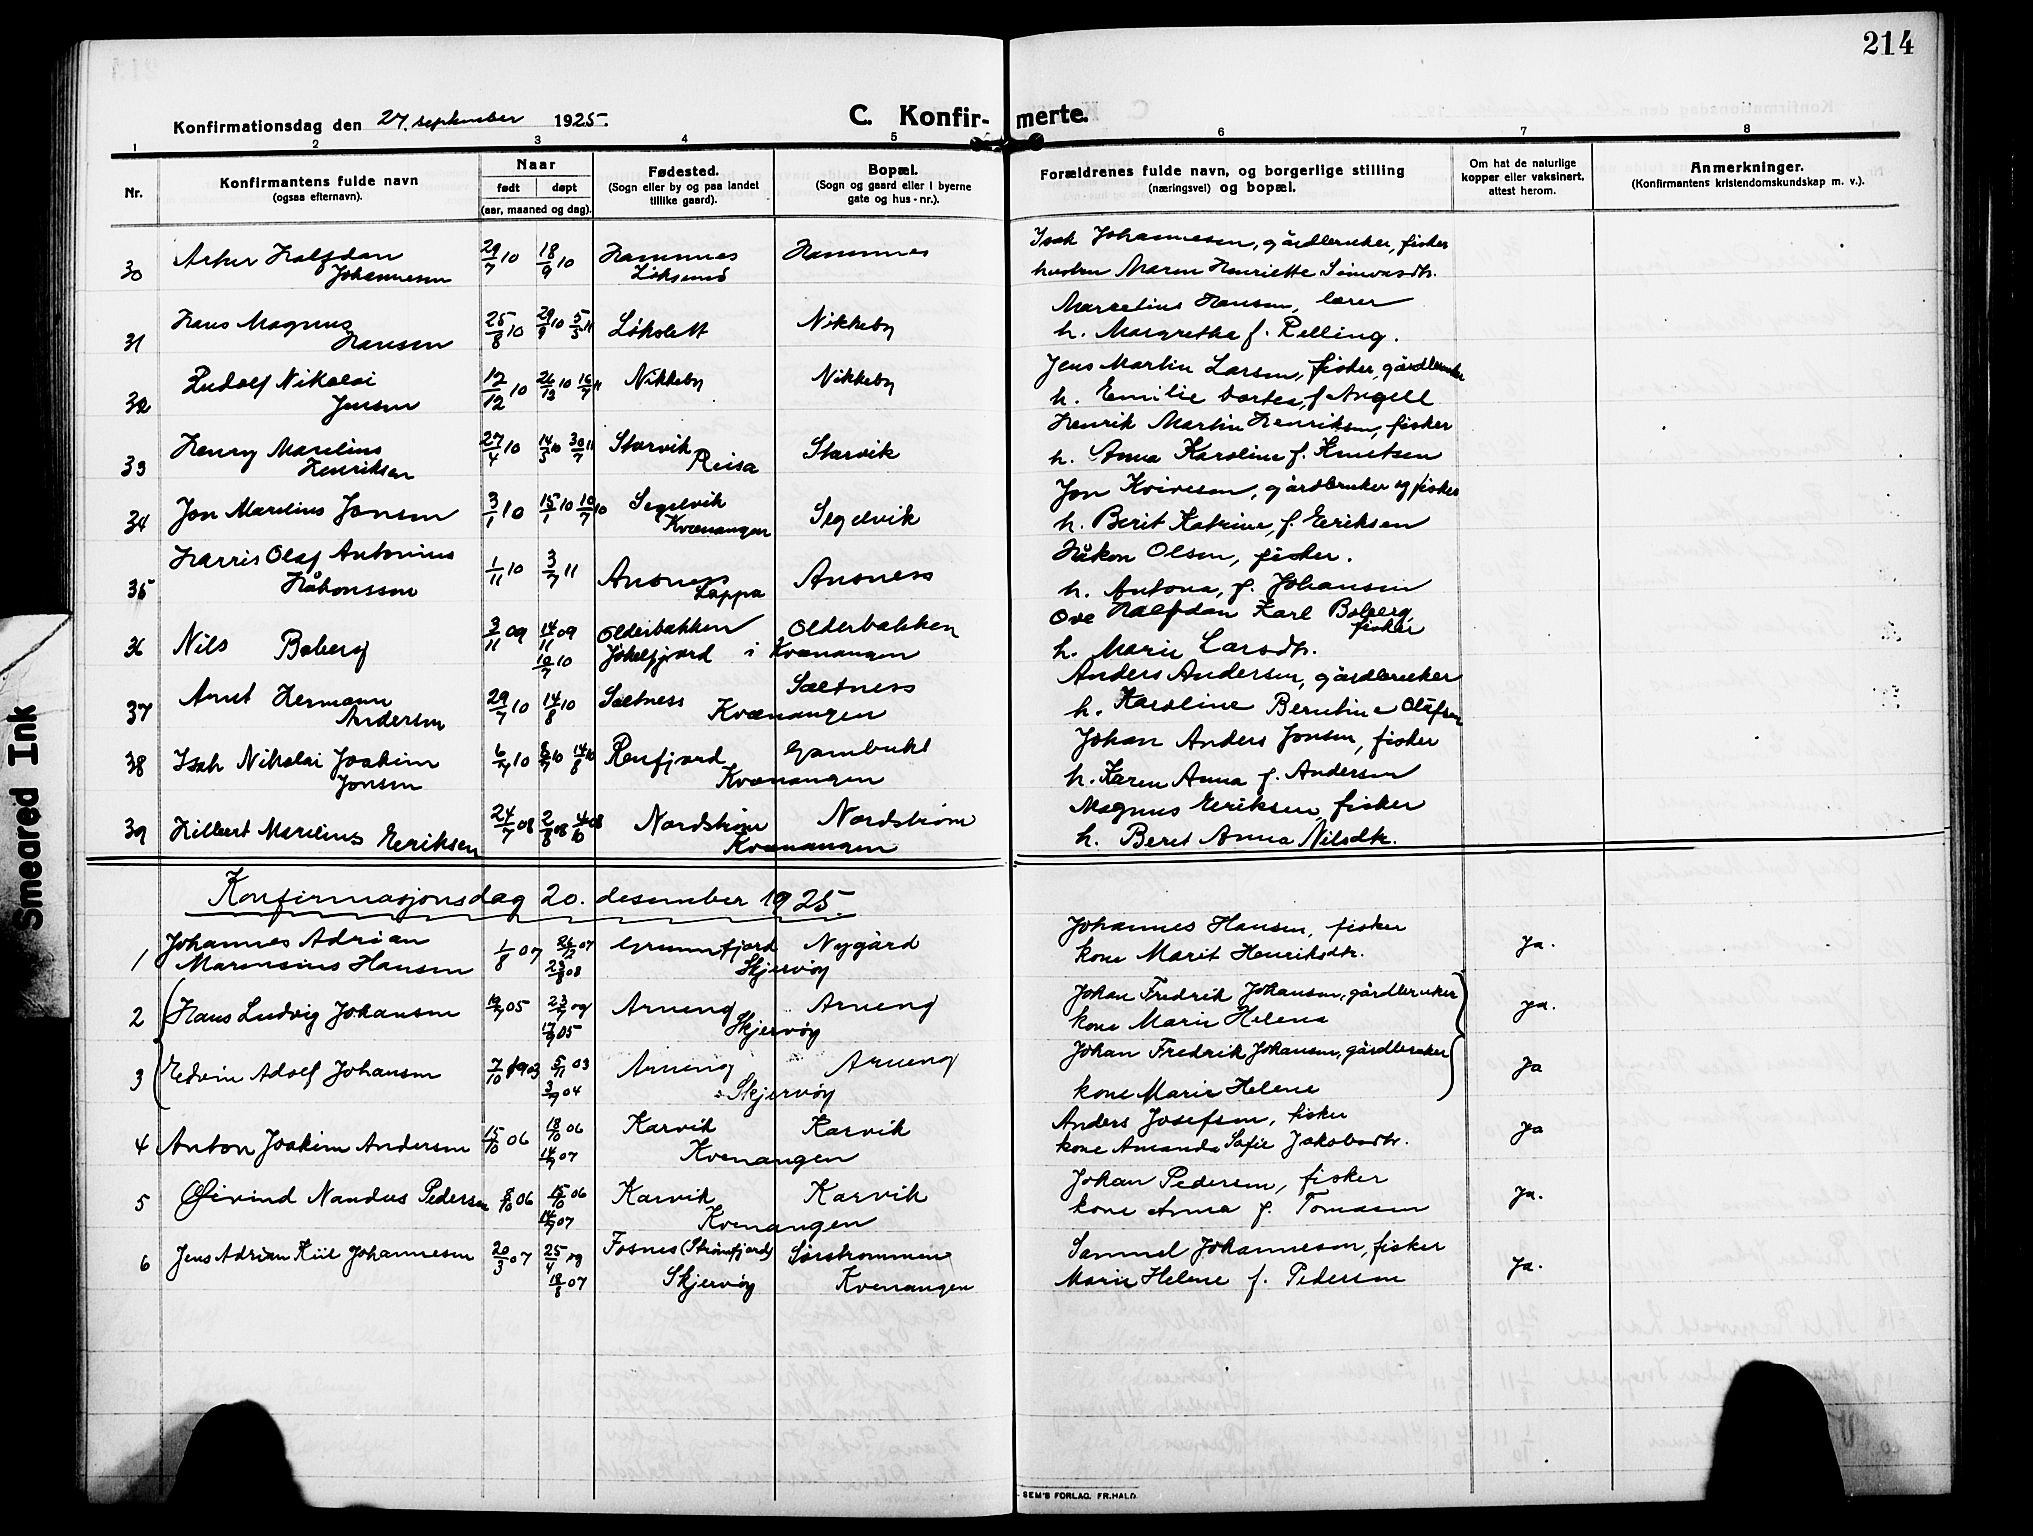 214
Konfirmationsdag den 27. september 1925.
C. Konfirmerte.
1 2 3 4 5 6 7 8
Nr.
Konfirmantens fulde navn
(ogsaa efternavn).
Naar
født døpt
(aar, maaned og dag).
Fødested.
(Sogn eller by og paa landet
tillike gaard).
Bopæl.
(Sogn og gaard eller i byerne
gate og hus-nr.).
Forældrenes fulde navn, og borgerlige stilling
(næringsvei) og bopæl.
Om hat de naturlige
kopper eller vaksinert,
attest herom.
Anmerkninger.
(Konfirmantens kristendomskundskap m. v.).
30 Halfdan 29/7 10 18/9 10 Hamnes Hamnes Isak Johannesen, gårdbruker, fisker
Johannesen hustru Maren Henriette
31 Hans Magnus 25/8 10 29/9 10 5/3 11 Løkslett Nikkeby Marcelius Hansen, lærer
Hansen h. Margrethe f. Relling.
32 Ludolf Nikolai 12/12 10 26/12 10 16/7 11 Nikkeby Nikkeby Jens Martin Larsen, fisker, gårdbruker
Jensen h. Emilie Dortea, f Angell
33 Henry Marelius 27/4 10 14/5 10 30/7 11 Storvik Storvik Henrik Martin Henriksen, fisker
Henriksen Reisa h. Anna Karoline f. Knutsen
34 Jon Marelius Jonsen 3/1 10 15/1 10 10/7 10 Segelvik Segelvik Jon Kvivesen, gårdbruker og fisker
Kvænangen h. Berit Katrine, f. Eriksen
35 Harris Olaf Antonius 1/11 10 3/7 11 Ansness Ansness Håkon Olsen, fisker.
Håkonssen Loppa h. Antona, f. Johansen
36 Nils Boberg 3/11 09 14/11 09 Olderbakken Olderbakken Ove Halfdan Karl Boberg,
fisker
10/7 10 Jøkelfjord i Kvænangen h. Marie Larsdtr.
37 Arnt Hermann 29/7 10 14/8 10 Saltness Saltness Anders Andersen, gårdbruker
Andersen Kvænangen h. Karoline Berntine Olufsen
38 Isak Nikolai Joakim 6/7 10 8/7 10 14/8 10 Renfjord Gambukt Johan Anders Jonsen, fisker
Jonsen Kvænangen h. Karen Anna f. Andersen
39 Hilbert Marelius Eriksen 24/7 08 2/8 08 4/10 08 Nordstrøm Nordstrøm Magnus Eriksen, fisker
Kvænangen h. Beret Anna Nilsdtr.
Konfirmasjonsdag 20. desember 1925.
1 Johannes Adrian 1/8 07 26/12 07 Grunnfjord Nygård Johannes Hansen, fisker Ja.
Marensius Hansen 23/8 08 Skjervøy kone Marit Henriksdtr.
2 Hans Ludvig Johansen 05 Arnøng Arnøng Johan Fredrik Johansen, gårdbruker Ja.
17/9 05 Skjervøy kone Marie Helene
3 Edvin Adolf Johansen 7/10 1903 5/11 03 Arnøng Arnøng Johan Fredrik Johansen, gårdbruker Ja
3/9 04 Skjervøy kone Marie Helene
4 Anton Joakim Andersen 15/10 06 18/10 06 Karvik Karvik Anders Josefsen, fisker Ja
14/7 07 Kvenangen kone Amanda Sofie Jakobsdtr.
5 Øivind Nandus Pedersen 8/10 06 15/10 06 Karvik Karvik Johan Pedersen, fisker Ja.
14/7 07 Kvenangen kone Anna f. Tomasen
6 Jens Adrian Kiil Johannesen 20/3 07 25/4 Fosnes (Strømfjord) Sørstrommen Samuel Johannesen, fisker Ja.
18/8 07 Skjervøy Kvenangen Marie Helene f. Pedersen
SEM'S FORLAG. FR.HALD
Smeared Ink